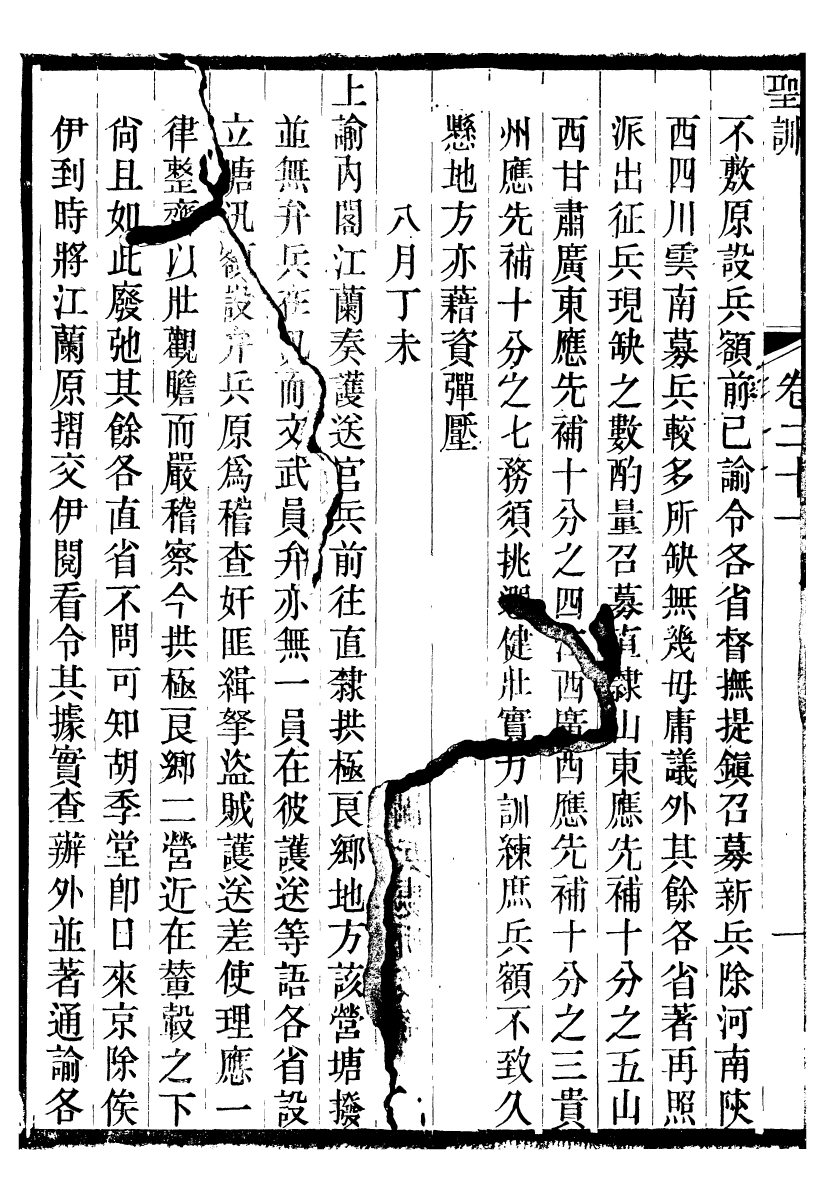 聖訓
卷二十一
一
不敷原設兵額前已諭令各省督撫提鎭召募新兵除河南陝
西四川雲南募兵較多所缺無幾毋庸議外其餘各省著再照
派出征兵現缺之數酌量召募直隸山東應先補十分之五山
西甘肅廣東應先補十分之四江西廣西應先補十分之三貴
州應先補十分之七務須挑選健壯實力訓練庶兵額不致久
懸地方亦藉資彈壓
八月丁未
上諭內閣江蘭奏護送官兵前往直隸拱極良鄉地方該營塘撥
並無弁兵在汛而文武員弁亦無一員在彼護送等語各省設
立塘汛額設弁兵原爲稽查奸匪緝拏盜賊護送差使理應一
律整齊以壯觀瞻而嚴稽察今拱極良鄉二營近在輦轂之下
尙且如此廢弛其餘各直省不問可知胡季堂卽日來京除俟
伊到時將江蘭原摺交伊閱看令其據實查辦外並著通諭各